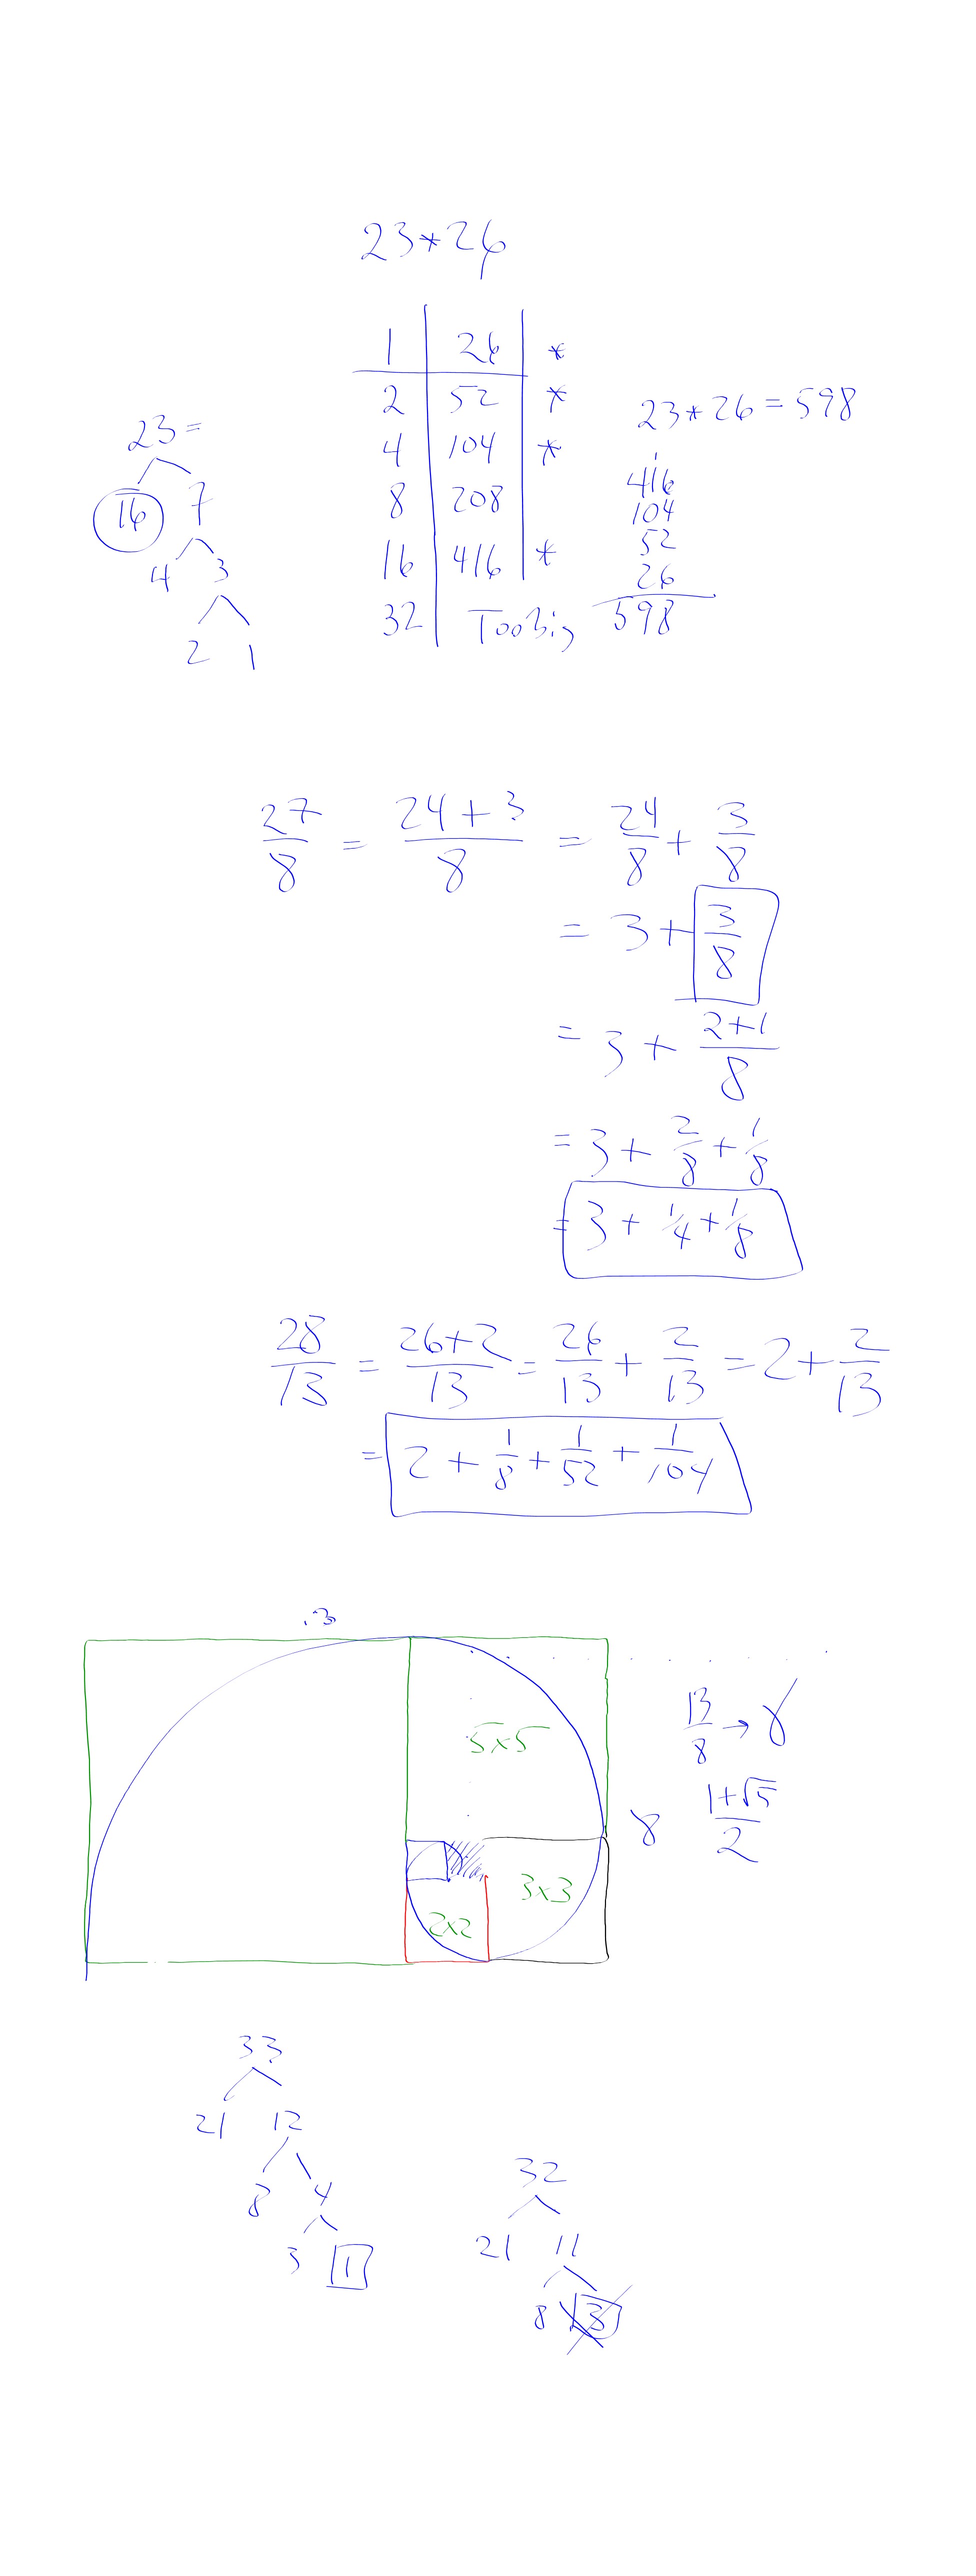 23*26
1 26 *
2 52 *
4 104 *
8 208
16 416 *
32 Too big
23=
16 7
4 3
2 1
23*26=598
1
416
104
52
26
598
27/8 = (24+3)/8 = 24/8 + 3/8
= 3 + 3/8
= 3 + (2+1)/8
= 3 + 2/8 + 1/8
= 3 + 1/4 + 1/8
28/13 = (26+2)/13 = 26/13 + 2/13 = 2 + 2/13
= 2 + 1/8 + 1/52 + 1/104
13
5x5
3x3
2x2
8
13/8 → γ
(1+√5)/2
33
21 12
8 4
3 1
32
21 11
8 3